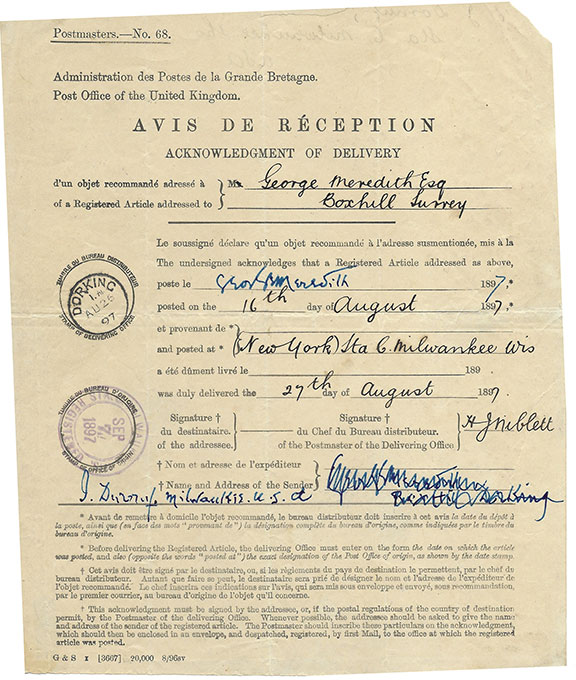 Postmasters.—No. 68.
Administration des Postes de la Grande Bretagne.
Post Office of the United Kingdom.
AVIS DE RÉCEPTION
ACKNOWLEDGMENT OF DELIVERY
d'un objet recommandé adressé à } M George Meredith Esq
of a Registered Article addressed to } Boxhill Surrey
Le soussigné déclare qu'un objet recommandé à l'adresse susmentionée, mis à la
The undersigned acknowledges that a Registered Article addressed as above,
poste le George Meredith 1897,*
posted on the 16th day of August 1897,*
et provenant de *
and posted at * (New York) Sta C. Milwaukee Wis
a été dûment livré le 189 .
was duly delivered the 27th day of August 1897.
TIMBRE DU BUREAU DISTRIBUTEUR
DORKING
AU 26
97
STAMP OF DELIVERING OFFICE
TIMBRE DU BUREAU D'ORIGINE
SEP
7
1897
STAMP OF OFFICE OF ORIGIN
Signature †
du destinataire.
of the addressee.
Signature †
du Chef du Bureau distributeur.
of the Postmaster of the Delivering Office
H J Niblett
† Nom et adresse de l'expéditeur
† Name and Address of the Sender
George Meredith
Boxhill Dorking
Milwaukee. U. S. A
* Avant de remettre à domicile l'envoi recommandé, le bureau distributeur doit inscrire à cet avis la date du dépôt à
la poste, ainsi que (en face des mots "provenant de") la désignation complète du bureau d'origine, comme indiquées par le timbre du
bureau d'origine.
* Before delivering the Registered Article, the delivering Office must enter on the form the date on which the article
was posted, and also (opposite the words "posted at") the exact designation of the Post Office of origin, as shown by the date stamp.
† Cet avis doit être signé par le destinataire, ou, si les règlements du pays de destination le permettent, par le chef du
bureau distributeur. Autant que faire se peut, le destinataire sera prié de désigner le nom et l'adresse de l'expéditeur de
l'objet recommandé. Le chef inscrira ces indications sur l'avis, qui sera mis sous enveloppe et envoyé, sous recommandation,
par le premier courrier, au bureau d'origine de l'objet qu'il concerne.
† This acknowledgment must be signed by the addressee, or, if the postal regulations of the country of destination
permit, by the Postmaster of the delivering Office. Whenever possible, the addressee should be asked to give the name
and address of the sender of the registered article. The Postmaster should inscribe these particulars on the acknowledgment,
which should then be enclosed in an envelope, and despatched, registered, by first Mail, to the office at which the registered
article was posted.
G & S 1 [3667] 20,000 8/96sv